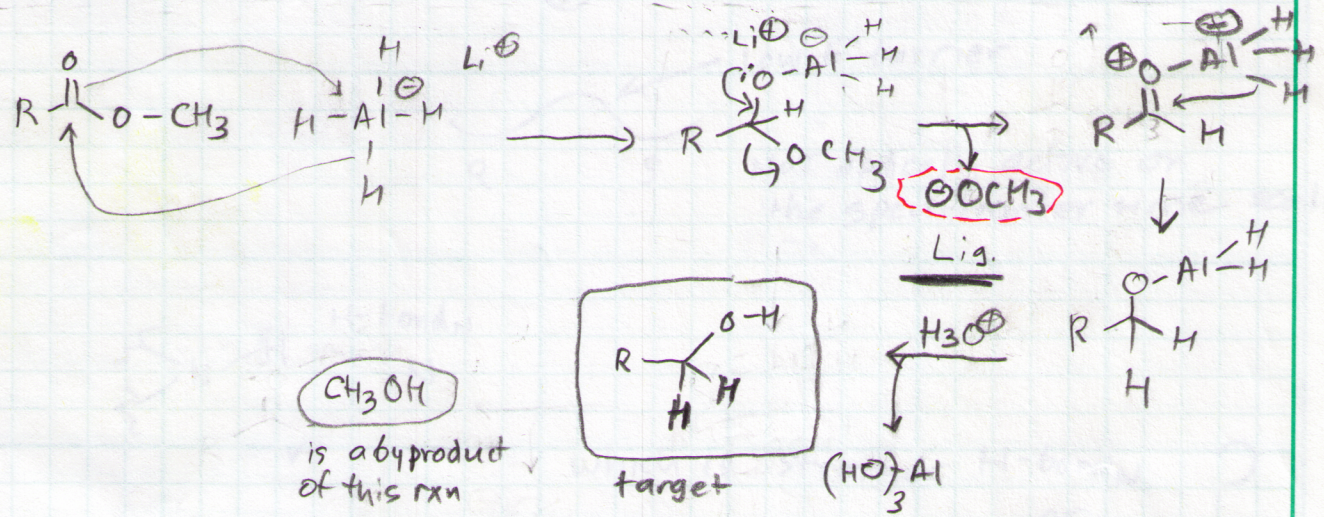 O
R
O - CH3
H
H - Al - H
⊖
H
Li ⊕
Li ⊕ ⊖
O - Al
H
H
H
R
H
O CH3
⊖OCH3
⊕
O - Al
⊕
H
H
H
R
H
Lig.
O - Al - H
H
R
H
H
H3O⊕
(HO)3 Al
O-H
R
H
H
target
CH3OH
is a byproduct
of this rxn